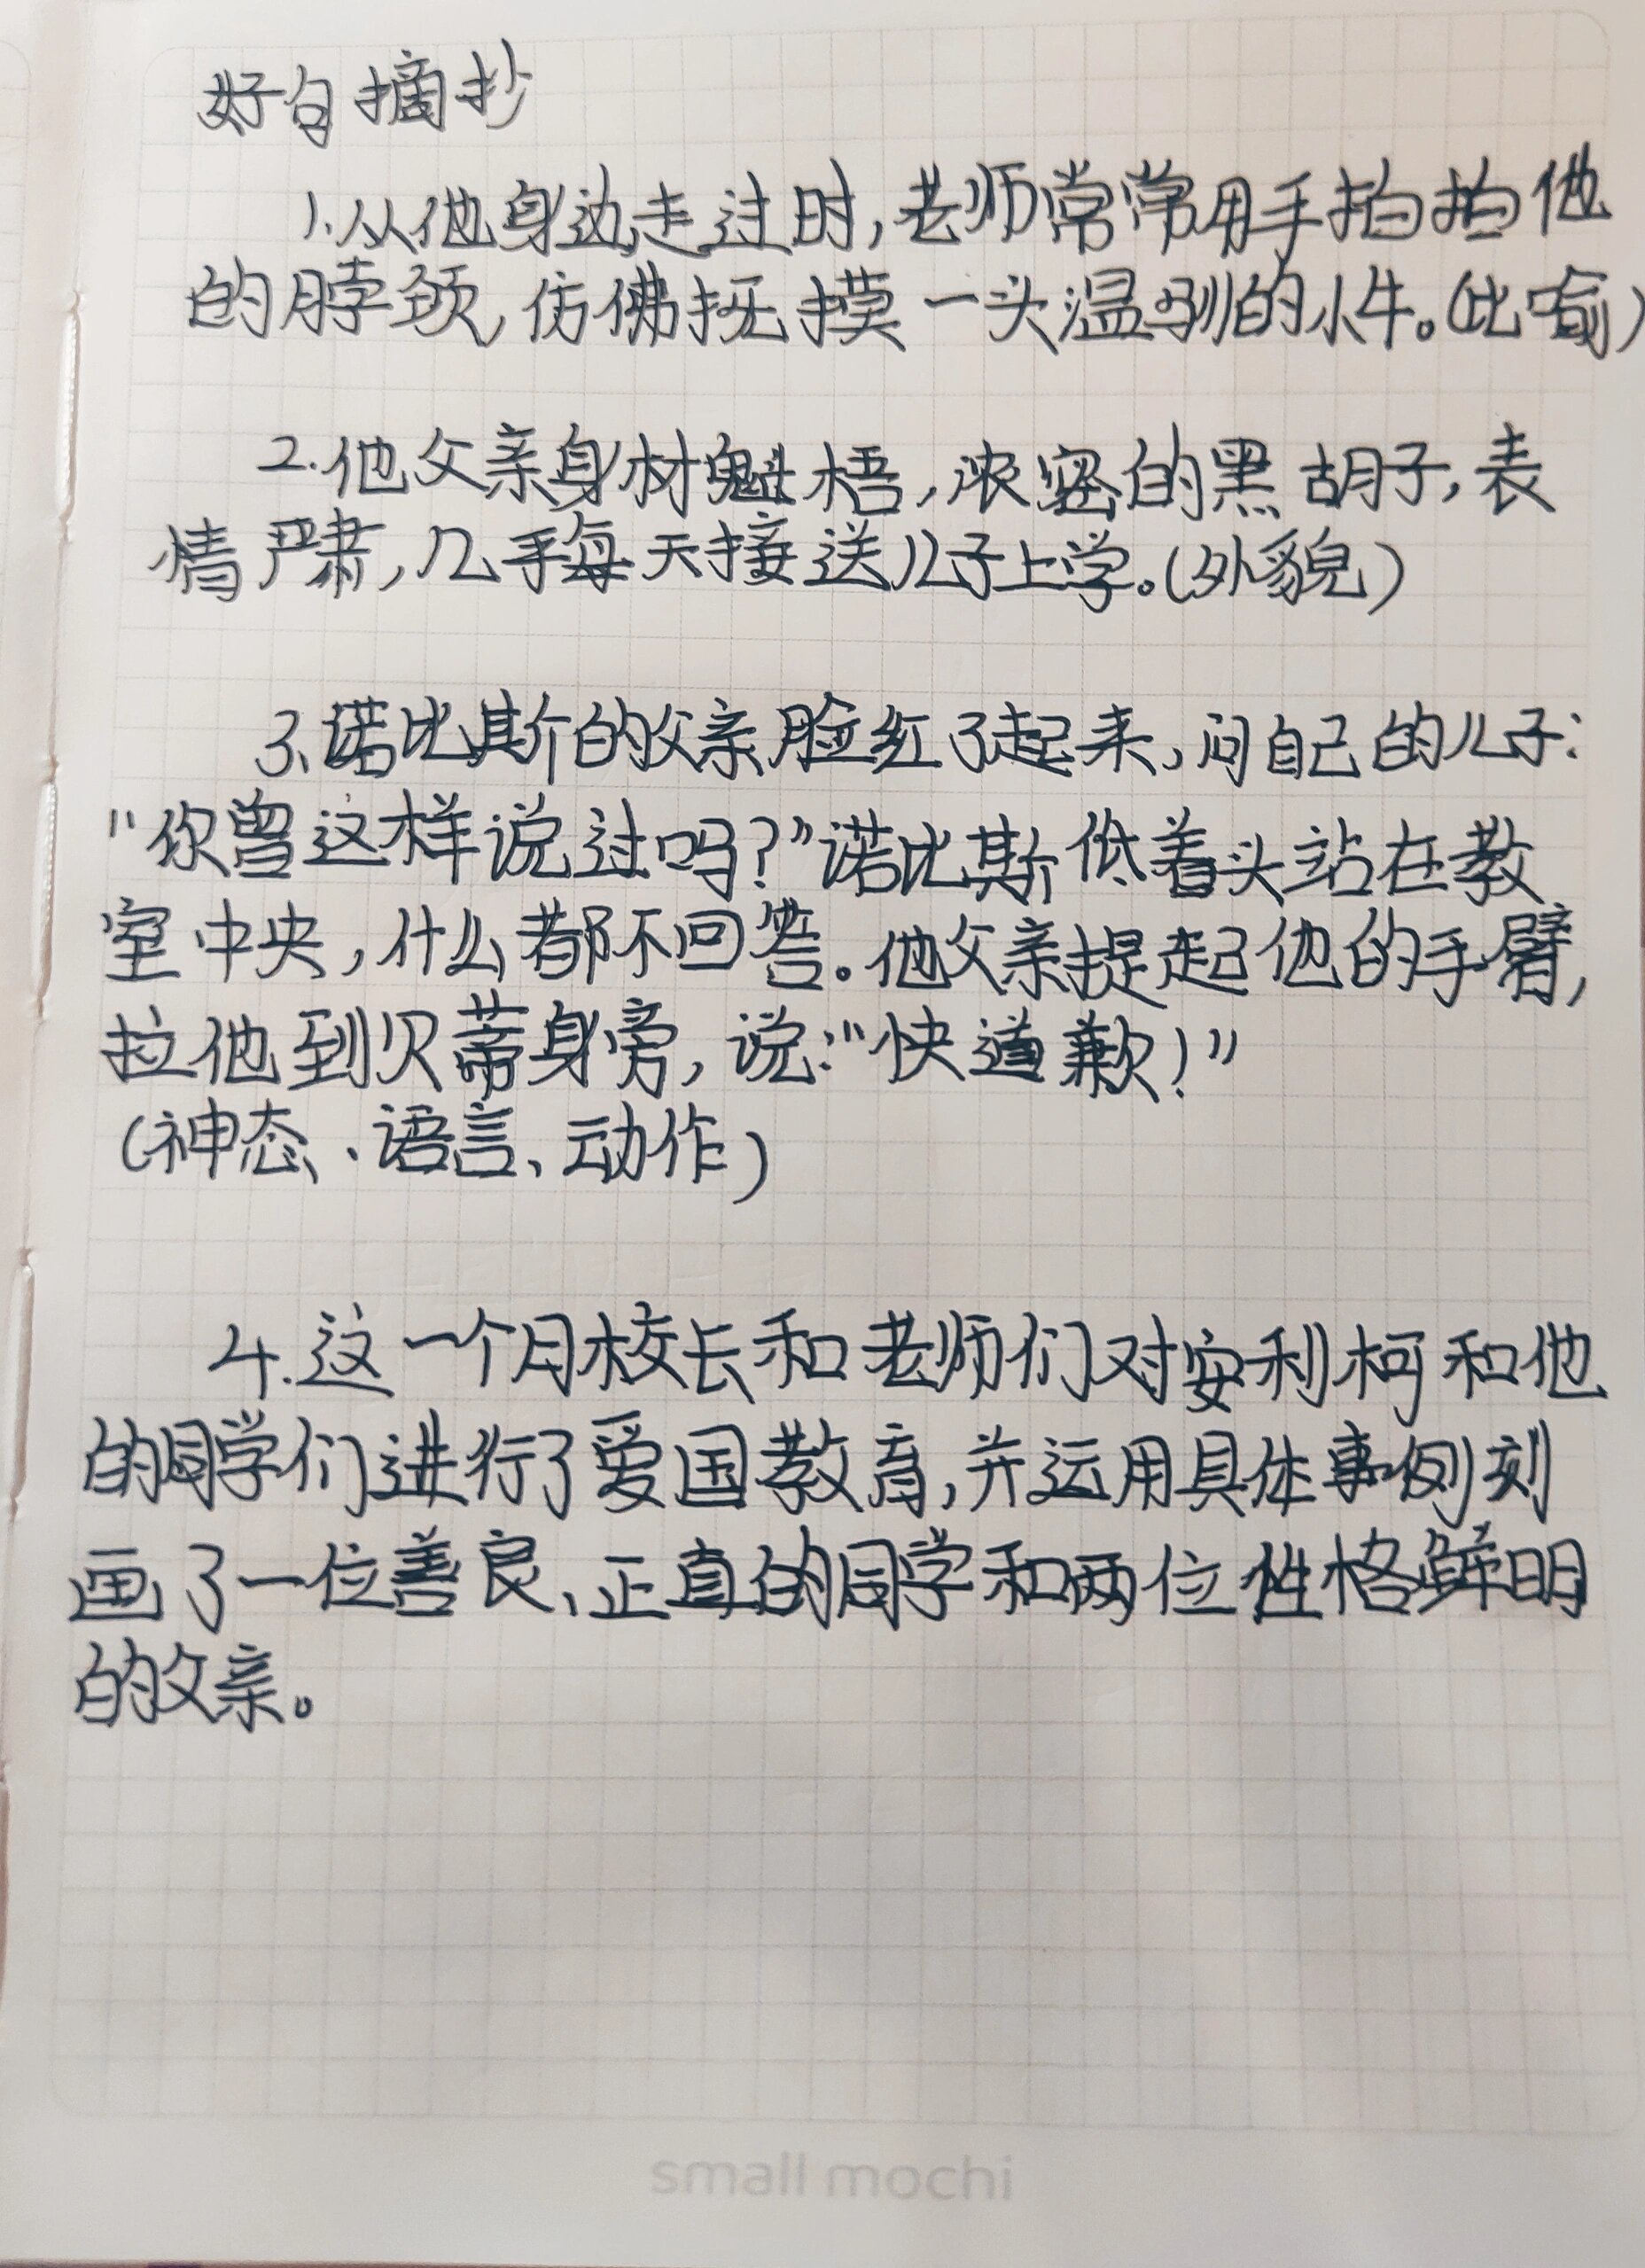 好句摘抄
1.从他身边走过时,老师常常用手拍拍他
的脖颈,仿佛抚摸一头温驯的小牛。(比喻)
2.他父亲身材魁梧,浓密的黑胡子,表
情严肃,几乎每天接送儿子上学。(外貌)
3.诺比斯的父亲脸红了起来,问自己的儿子:
"你曾这样说过吗?"诺比斯低着头站在教
室中央,什么都不回答。他父亲提起他的手臂,
拉他到贝蒂身旁,说:"快道歉!"
(神态、语言、动作)
4.这一个月校长和老师们对安利柯和他
的同学们进行了爱国教育,并运用具体事例刻
画了一位善良、正直的同学和两位性格鲜明
的父亲。
small mochi